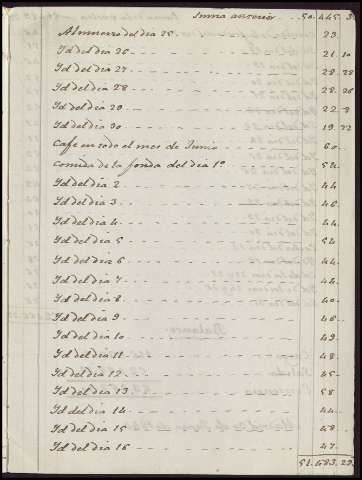 Suma anterior - - 50.445.3
Almuerzo del dia 25 - - - - - 23.
Id del dia 26 - - - - - 21.10
Id del dia 27 - - - - - 28.28
Id del dia 28 - - - - - 28.26
Id del dia 29 - - - - - 22.8
Id del dia 30 - - - - - 19.22
Cafe en todo el mes de Junio - - - 60..
Comida de la fonda del dia 1º - - - 54..
Id del dia 2 - - - - - 44
Id del dia 3 - - - - - 46.
Id del dia 4 - - - - - 44.
Id del dia 5 - - - - - 54
Id del dia 6 - - - - - 44.
Id del dia 7 - - - - - 44.
Id del dia 8 - - - - - 40.
Id del dia 9 - - - - - 46..
Id del dia 10 - - - - - 49.
Id del dia 11 - - - - - 48.
Id del dia 12 - - - - - 45.
Id del dia 13 - - - - - 58
Id del dia 14 - - - - - 44..
Id del dia 15 - - - - - 48..
Id del dia 16 - - - - - 47.
51.583.29